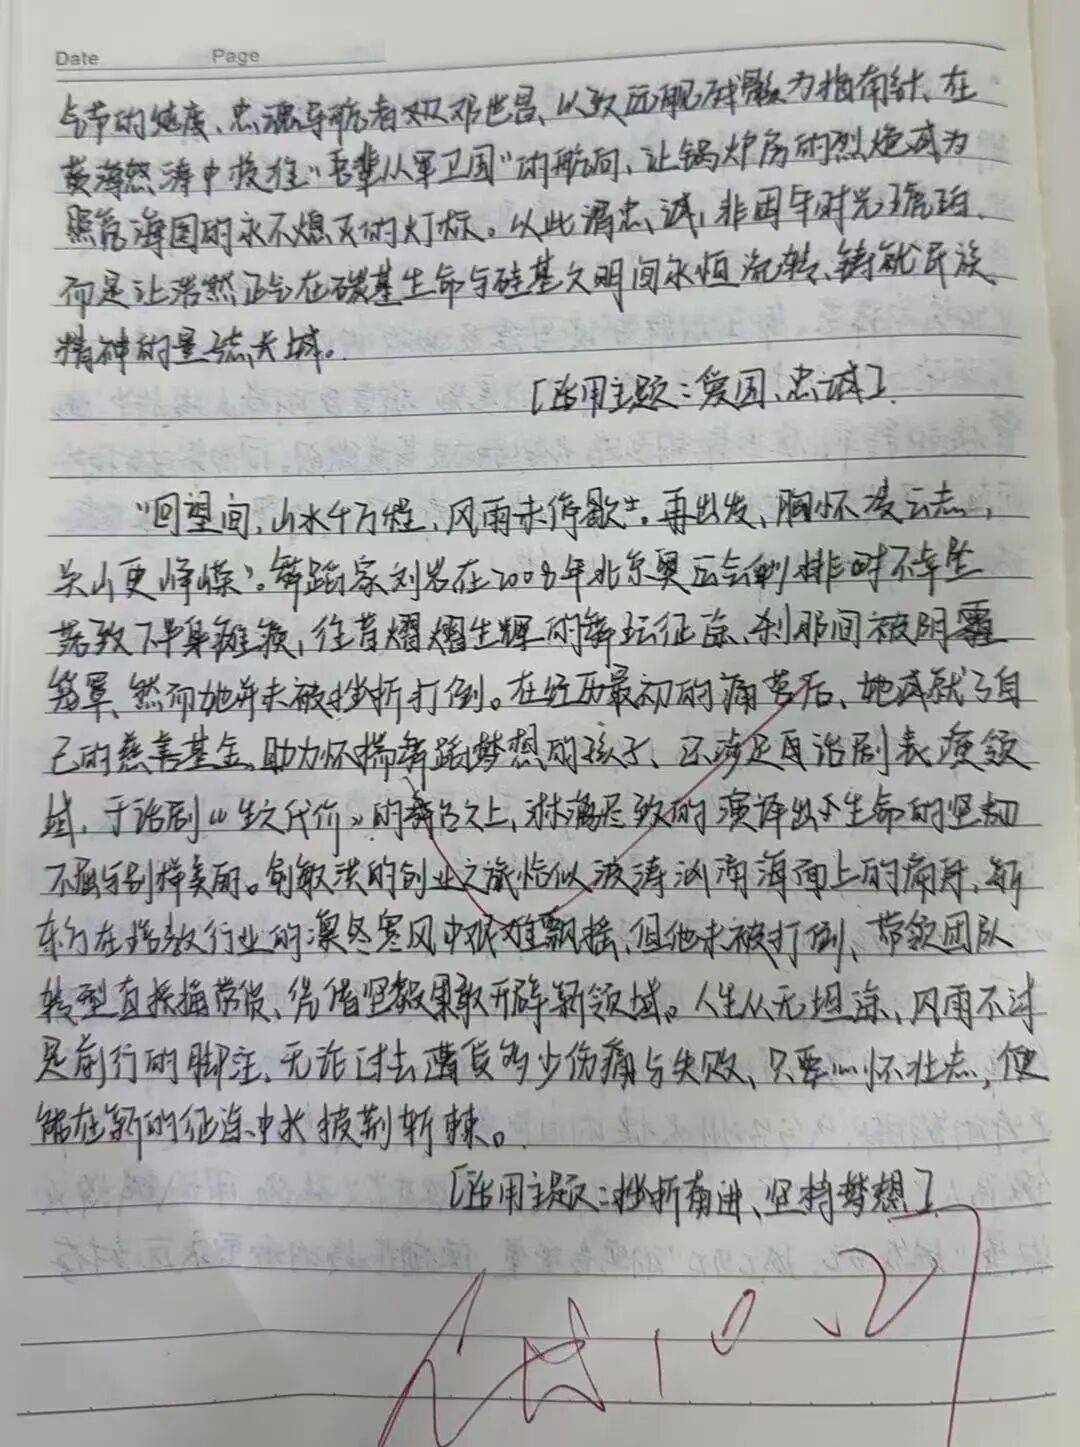 Date Page
气节的炬度、忠魂导航者如邓世昌、以致远舰残骸为指南针、在
黄海怒涛中校准“吾辈从军卫国”的航向、让锅炉房的烈焰成为
照亮海国的永不熄灭的灯标。以此谓忠诚，非困乎时光琥珀、
而是让浩然正气在碳基生命与硅基文明间永恒流转、铸就民族
精神的量子长城。
[适用主题：爱国、忠诚]
“回望间，山水千万程、风雨未停歇”。再出发、胸怀凌云志，
关山更峥嵘。舞蹈家刘岩在2008年北京奥运会彩排时不幸坠
落致下半身瘫痪，往昔熠熠生辉的舞坛征途、刹那间被阴霾
笼罩、然而她并未被挫折打倒。在经历最初的痛苦后、她成就了自
己的慈善基金、助力怀揣舞蹈梦想的孩子、还涉足话剧表演领
域，于话剧《生之代价》的舞台之上，淋漓尽致的演译出生命的坚韧
不屈与别样美丽。俞敏洪的创业之旅恰似波涛汹涌海面上的扁舟、新
东方在培教行业的凛冬寒风中艰难飘摇、但他未被打倒、带领团队
转型直接播带货、凭借坚毅果敢开辟新领域。人生从无坦途、风雨不过
是前行的脚注、无论过去蕴负多少伤痛与失败、只要心怀壮志，便
能在新的征途中长披荆斩棘。
[适用主题：挫折奋进、坚持梦想]